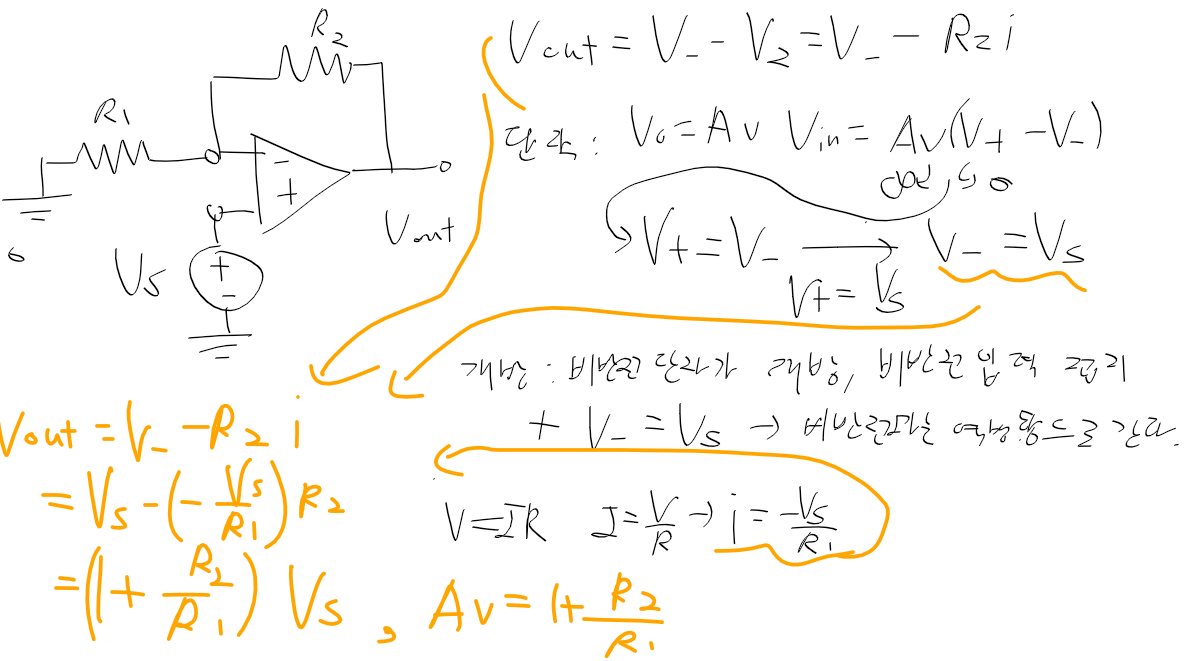 R₂
R₁
Vout = V₋ - V₂ = V₋ - R₂ i
단락 : Vo = Av Vin = Av(V+ - V₋)
0
V+ = V₋ → V₋ = Vs
V+ = Vs
Vout
Vs
0
개방 : 비반전 단자가 개방, 비반전 입력
+ V₋ = Vs → 역방향으로 간다.
V = IR I = V/R → i = -Vs/R₁
Vout = V₋ - R₂ i
= Vs - (-Vs/R₁) R₂
= (1 + R₂/R₁) Vs , Av = 1 + R₂/R₁